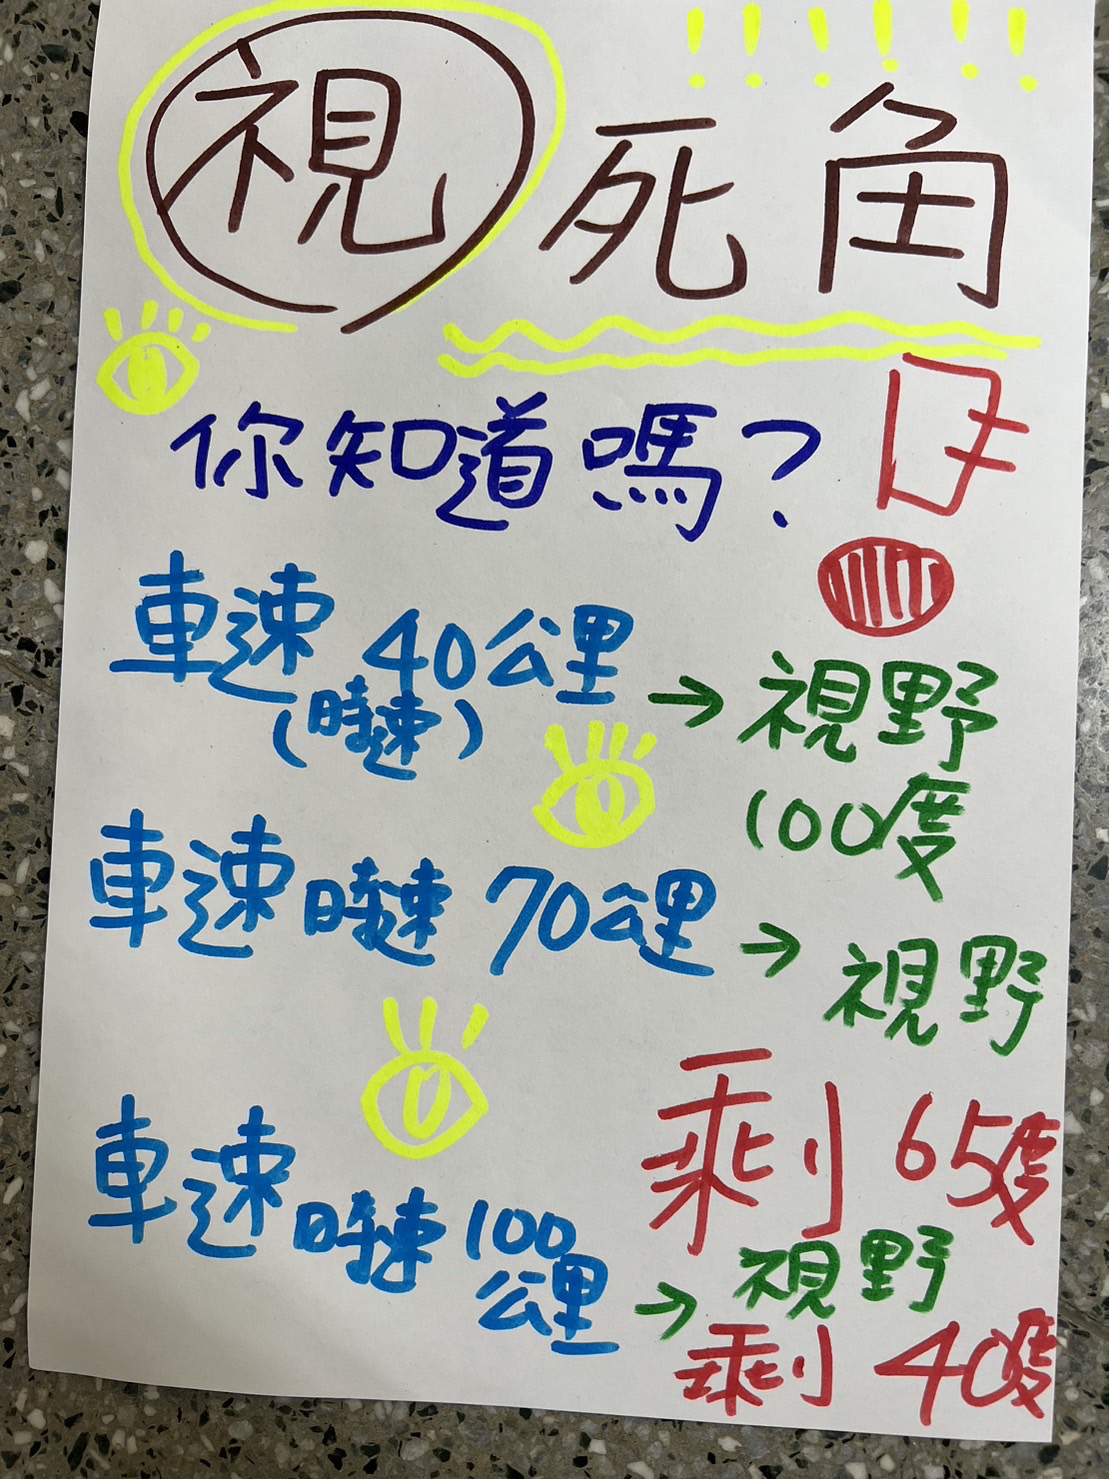 視死角
!!!!!!
你知道嗎?
車速40公里
(時速)
→視野
100度
車速時速70公里
→視野
剩65度
車速時速100
公里
→視野
剩40度